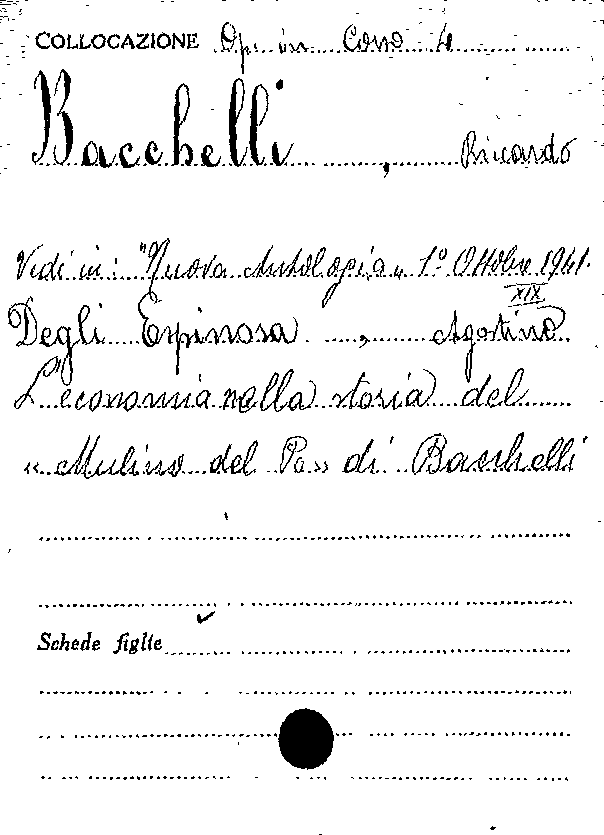 COLLOCAZIONE Op. in Corso 4
Bacchelli, Riccardo
Vedi in: "Nuova Antologia" 1° Ottobre 1941.
XIX
Degli Espinosa, Agostino
L'economia nella storia del
"Mulino del Po" di Bacchelli
Schede figlie